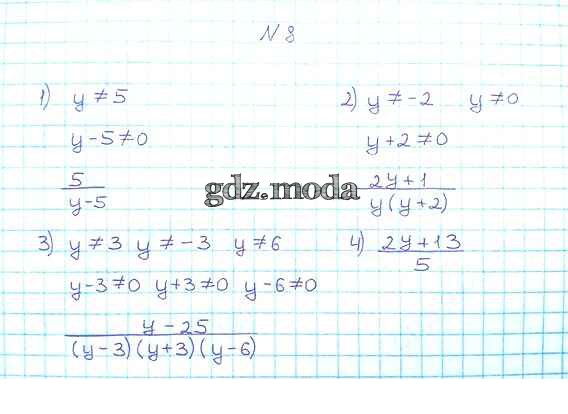 N 8
1) y ≠ 5
y - 5 ≠ 0
5
y - 5
2) y ≠ -2 y ≠ 0
y + 2 ≠ 0
2y + 1
y (y + 2)
gdz.moda
3) y ≠ 3 y ≠ -3 y ≠ 6
y - 3 ≠ 0 y + 3 ≠ 0 y - 6 ≠ 0
y - 25
(y - 3) (y + 3) (y - 6)
4) 2y + 13
5